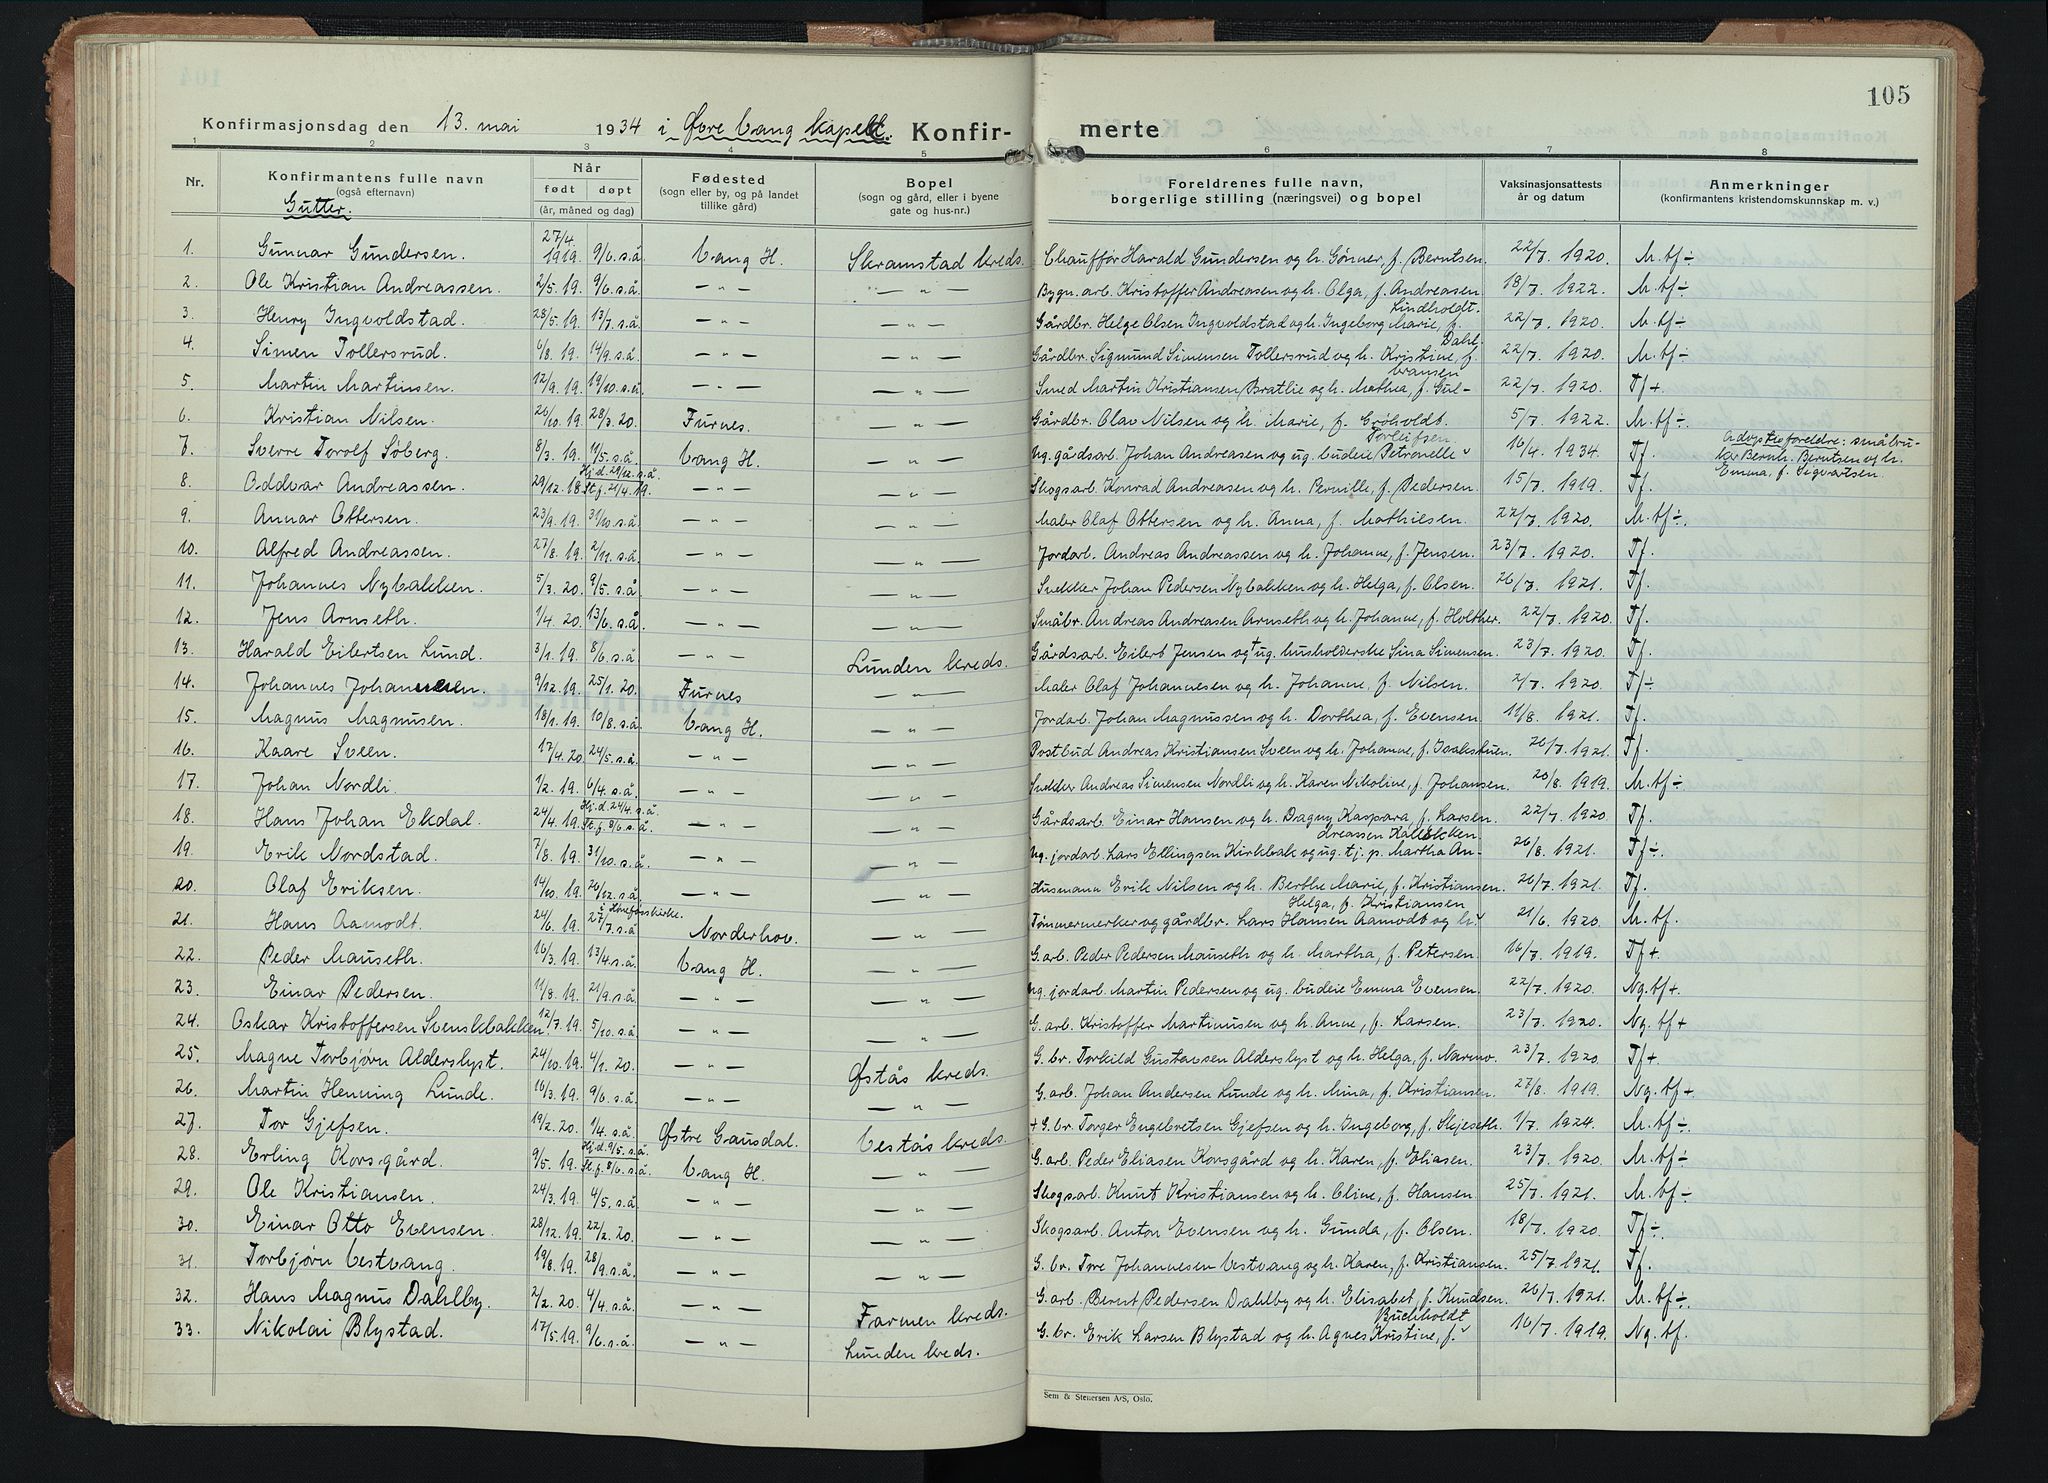 105
Konfirmasjonsdag den 13. mai 1934 i Øvre Vang kapell. Konfir- merte
1 2 3 4 5 6 7 8
Nr. Konfirmantens fulle navn (også efternavn) Når født døpt (år, måned og dag) Fødested (sogn eller by, og på landet tillike gård) Bopel (sogn og gård, eller i byene gate og hus-nr.) Foreldrenes fulle navn, borgerlige stilling (næringsvei) og bopel Vaksinasjonsattests år og datum Anmerkninger (konfirmantens kristendomskunnskap m. v.)
Gutter.
1. Gunnar Gundersen. 27/4. 1919. 9/6. s.å. Vang H. Skramstad kreds. Chauffør Harald Gundersen og h. Gønner, f. Berntsen. 22/7. 1920. M.tf÷
2. Ole Kristian Andreassen. 2/5. 19. 9/6. s.å. — „ — — „ — Bygn. arb. Kristoffer Andreasen og h. Olga, f. Andreasen 18/7. 1922. M.tf÷
3. Henry Ingvoldstad. 28/5. 19. 13/7. s.å. — „ — — „ — Gårdbr. Helge Olsen Ingvoldstad og h. Ingeborg Marie, f. Lindholdt. 22/7. 1920. M.tf÷
4. Simen Tollersrud. 6/8. 19. 14/9. s.å. — „ — — „ — Gårdbr. Sigmund Simensen Tollersrud og h. Kristine, f. Dahl. 22/7. 1920. M.tf÷
5. Martin Martinsen. 12/9. 19. 19/10. s.å. — „ — — „ — Smed Martin Kristiansen Bratlie og h. Mathea, f. Gul- bransen 22/7. 1920. Tf+
6. Kristian Nilsen. 26/10. 19. 28/3. 20. Furnes. — „ — Gårdbr. Olav Nilsen og h. Marie, f. Grøholdt. 5/7. 1922. M.tf÷
7. Sverre Torolf Søberg. 8/3. 19. 11/5. s.å. Vang H. — „ — Ug. gårdsarb. Johan Andreasen og ug. budeie Petronelle Torleifsen 16/4. 1934. Tf. Adoptivforeldre: småbru- ker Bernh. Berntsen og h. Emma, f. Sigvartsen.
8. Oddvar Andreassen. 29/12. 18. Hj.d. 29/12. s.å. St.f. 21/4. 19. — „ — — „ — Skogsarb. Konrad Andreasen og h. Pernille, f. Pedersen. 15/7. 1919. Tf.
9. Annar Ottersen. 23/9. 19. 31/10. s.å. — „ — — „ — Maler Olaf Ottersen og h. Anna, f. Mathiesen. 22/7. 1920. M.tf÷.
10. Alfred Andreassen. 27/8. 19. 2/11. s.å. — „ — — „ — Jordarb. Andreas Andreassen og h. Johanne, f. Jensen. 23/7. 1920. Tf.
11. Johannes Nybakken. 5/3. 20. 9/5. s.å. — „ — — „ — Snekker Johan Pedersen Nybakken og h. Helga, f. Olsen. 26/7. 1921. Tf.
12. Jens Arnseth. 1/4. 20. 13/6. s.å. — „ — — „ — Småbr. Andreas Andreasen Arnseth og h. Johanne, f. Holther. 22/7. 1920. Tf.
13. Harald Eilertsen Lund. 3/1. 19. 8/6. s.å. — „ — Lunden kreds. Gårdsarb. Eilert Jensen og + ug. husholderske Sina Simensen. 23/7. 1920. Tf.
14. Johannes Johannesen. 9/12. 19. 25/1. 20. Furnes — „ — Maler Olaf Johannesen og h. Johanne, f. Nilsen. 2/7. 1920. Tf÷
15. Magnus Magnusen. 18/1. 19. 10/8. s.å. Vang H. — „ — Jordarb. Johan Magnussen og h. Dorthea, f. Evensen 11/8. 1921. Tf.
16. Kaare Sveen. 17/4. 20. 24/5. s.å. — „ — — „ — Postbud Andreas Kristiansen Sveen og h. Johanne, f. 26/7. 1921. Tf.
17. Johan Nordli. 1/2. 19. 6/4. s.å. — „ — — „ — Snekker Andreas Simensen Nordli og h. Karen Nikoline, f. Johansen. 20/8. 1919. M.tf÷
18. Hans Johan Ekdal. 24/4. 19. Hj.d. 24/4. s.å. St.f. 8/6. s.å. — „ — — „ — Gårdsarb. Einar Hansen og h. Dagny Kaspara, f. Larsen. 22/7. 1920. Tf.
19. Erik Nordstad. 7/8. 19. 31/10. s.å. — „ — — „ — Ug. jordarb. Lars Ellingsen Kirkbak og ug. tj. p. Martha An- dreassen 26/8. 1921. Tf÷.
20. Olaf Eriksen. 14/10. 19. 26/12. s.å. — „ — — „ — Husmann Erik Nilsen og h. Berthe Marie, f. Kristiansen. 26/7. 1921. Tf.
21. Hans Aamodt. 24/6. 19. 27/7. s.å. i Hønefoss kirke. Norderhov. — „ — Tømmermerker og gårdbr. Lars Hansen Aamodt og h. Helga, f. Kristiansen 21/6. 1920. M.tf.
22. Peder Mauseth. 16/3. 19. 13/4. s.å. Vang H. — „ — G. arb. Peder Pedersen Mauseth og h. Martha, f. Petersen. 16/7. 1919. Tf+
23. Einar Pedersen. 11/8. 19. 21/9. s.å. — „ — — „ — Ug. jordarb. Martin Pedersen og ug. budeie Emma Evensen. 22/7. 1920. Ng.tf+
24. Oskar Kristoffersen Svenskbakken. 12/7. 19. 5/10. s.å. — „ — — „ — G. arb. Kristoffer Martinusen og h. Anne, f. Larsen. 23/7. 1920. Ng.tf+
25. Magne Torbjørn Alderslyst. 24/10. 19. 4/1. 20. — „ — Østås kreds. G. br. Torkild Gustavsen Alderslyst og h. Helga, f. Narmo. 23/7. 1920. Tf+
26. Martin Henning Lunde. 16/3. 19. 9/6. s.å. — „ — — „ — G. arb. Johan Andersen Lunde og h. Mina, f. Kristiansen. 27/8. 1919. Ng.tf+
27. Tor Gjefsen. 19/2. 20. 1/4. s.å. Østre Gausdal. Vestås kreds. + G. br. Torger Engebretsen Gjefsen og h. Ingeborg, f. Skjeseth. 1/7. 1924. M.tf÷.
28. Erling Korsgård. 9/5. 19. Hj.d. 9/5. s.å. St.f. 8/6. s.å. Vang H. — „ — G. arb. Peder Eliasen Korsgård og h. Karen, f. Eliasen. 23/7. 1920. M.tf÷
29. Ole Kristiansen. 24/3. 19. 4/5. s.å. — „ — — „ — Skogsarb. Knut Kristiansen og h. Oline, f. Hansen 25/7. 1921. M.tf÷.
30. Einar Otto Evensen. 28/12. 19. 22/2. 20. — „ — — „ — Skogsarb. Anton Evensen og h. Gunda, f. Olsen. 18/7. 1920. Tf÷
31. Torbjørn Vestvang. 19/8. 19. 28/9. s.å. — „ — — „ — G. br. Tore Johannesen Vestvang og h. Karen, f. Kristiansen. 25/7. 1921. Tf.
32. Hans Magnus Dahlby. 2/2. 20. 4/4. s.å. — „ — Farmen kreds. G. arb. Bernt Pedersen Dahlby og h. Elisabet, f. Knudsen. 26/7. 1921. M.tf÷
33. Nikolai Blystad. 17/5. 19. 9/6. s.å. — „ — Lunden kreds. G. br. Erik Larsen Blystad og h. Agnes Kristine, f. Buchholdt 16/7. 1919. Ng.tf.
Sem & Stenersen A/S, Oslo.